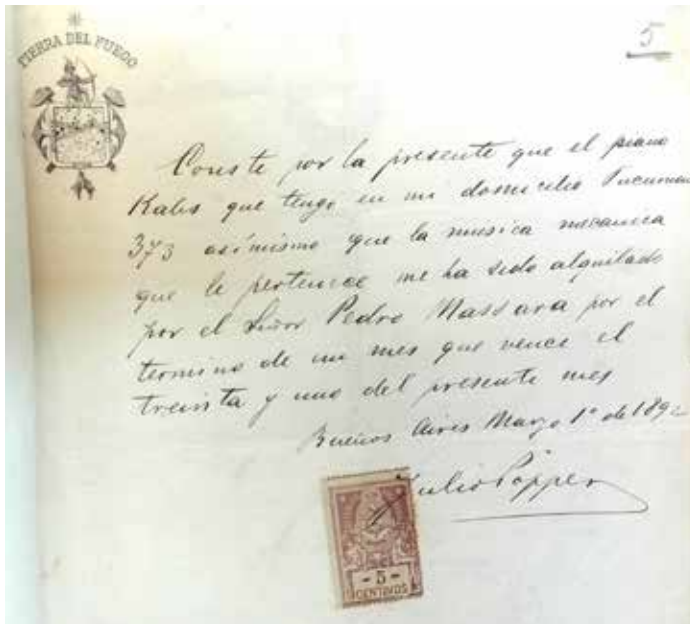 TIERRA DEL FUEGO
5
Conste por la presente que el piano
Kabs que tengo en mi domicilio Tucuman
373 asimismo que la musica mecanica
que le pertenece me ha sido alquilado
por el Señor Pedro Massara por el
termino de un mes que vence el
treinta y uno del presente mes
Buenos Aires Marzo 1º de 1892
Julio Popper
- 5 -
CENTAVOS